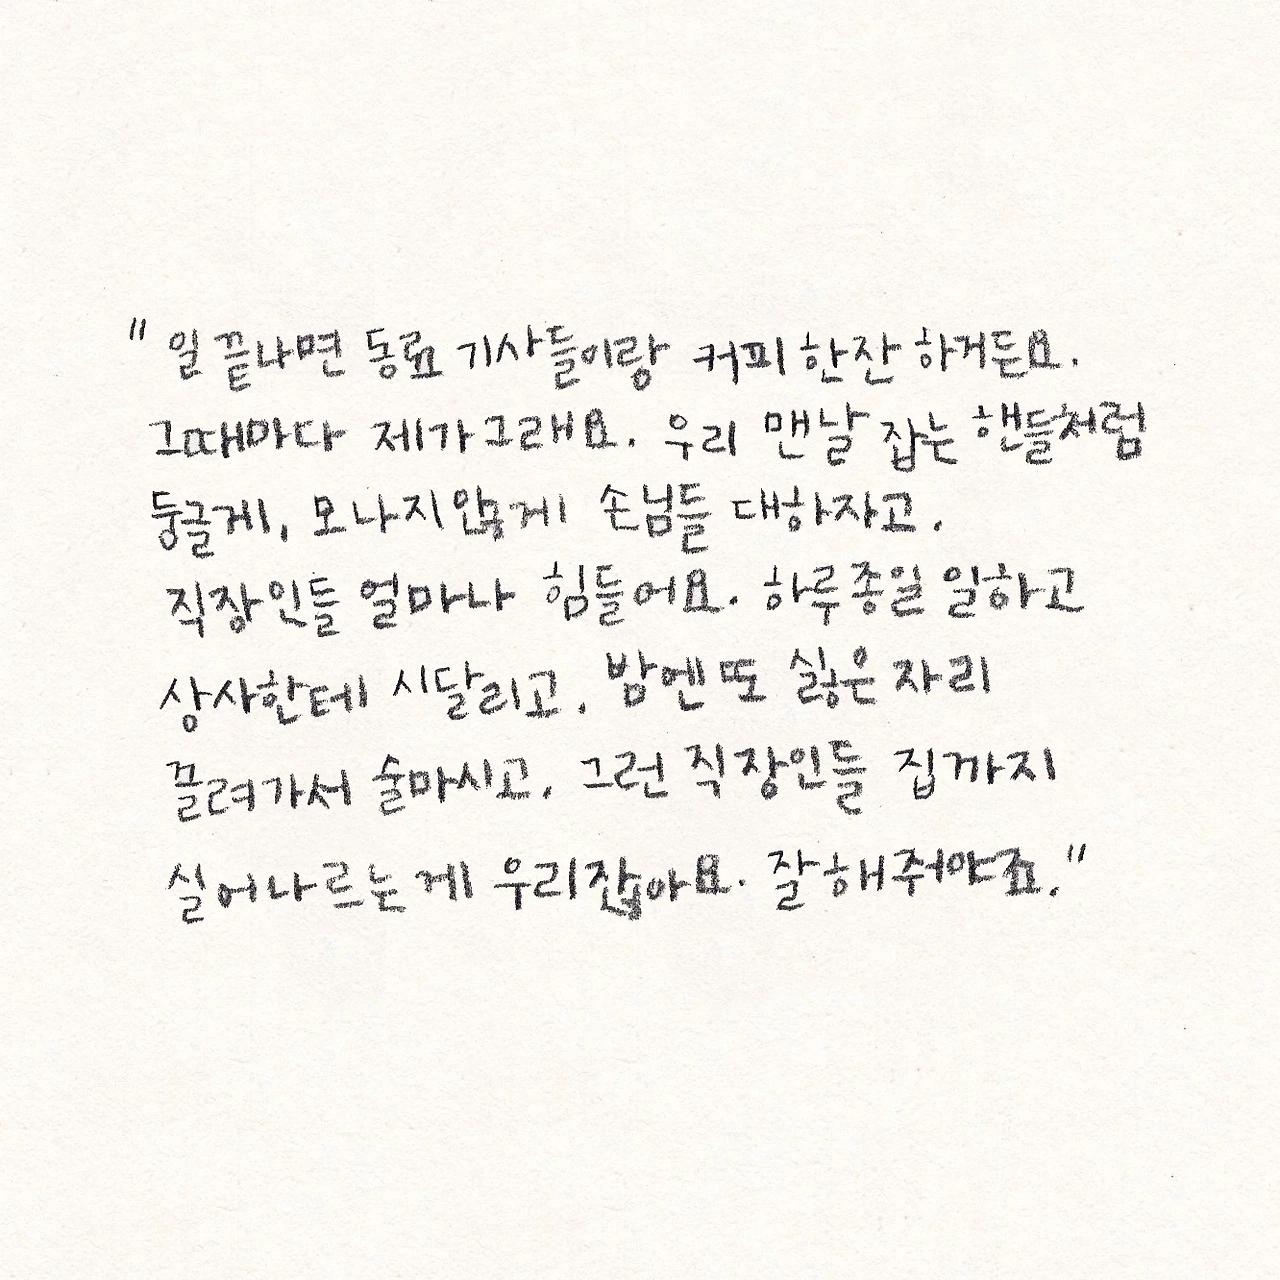 " 일 끝나면 동료 기사들이랑 커피 한잔 하거든요.
그때마다 제가 그래요. 우리 맨날 잡는 핸들처럼
둥글게, 모나지 않게 손님들 대하자고.
직장인들 얼마나 힘들어요. 하루종일 일하고
상사한테 시달리고, 밤엔 또 싫은 자리
끌려가서 술마시고, 그런 직장인들 집까지
실어나르는 게 우리잖아요. 잘 해줘야죠."